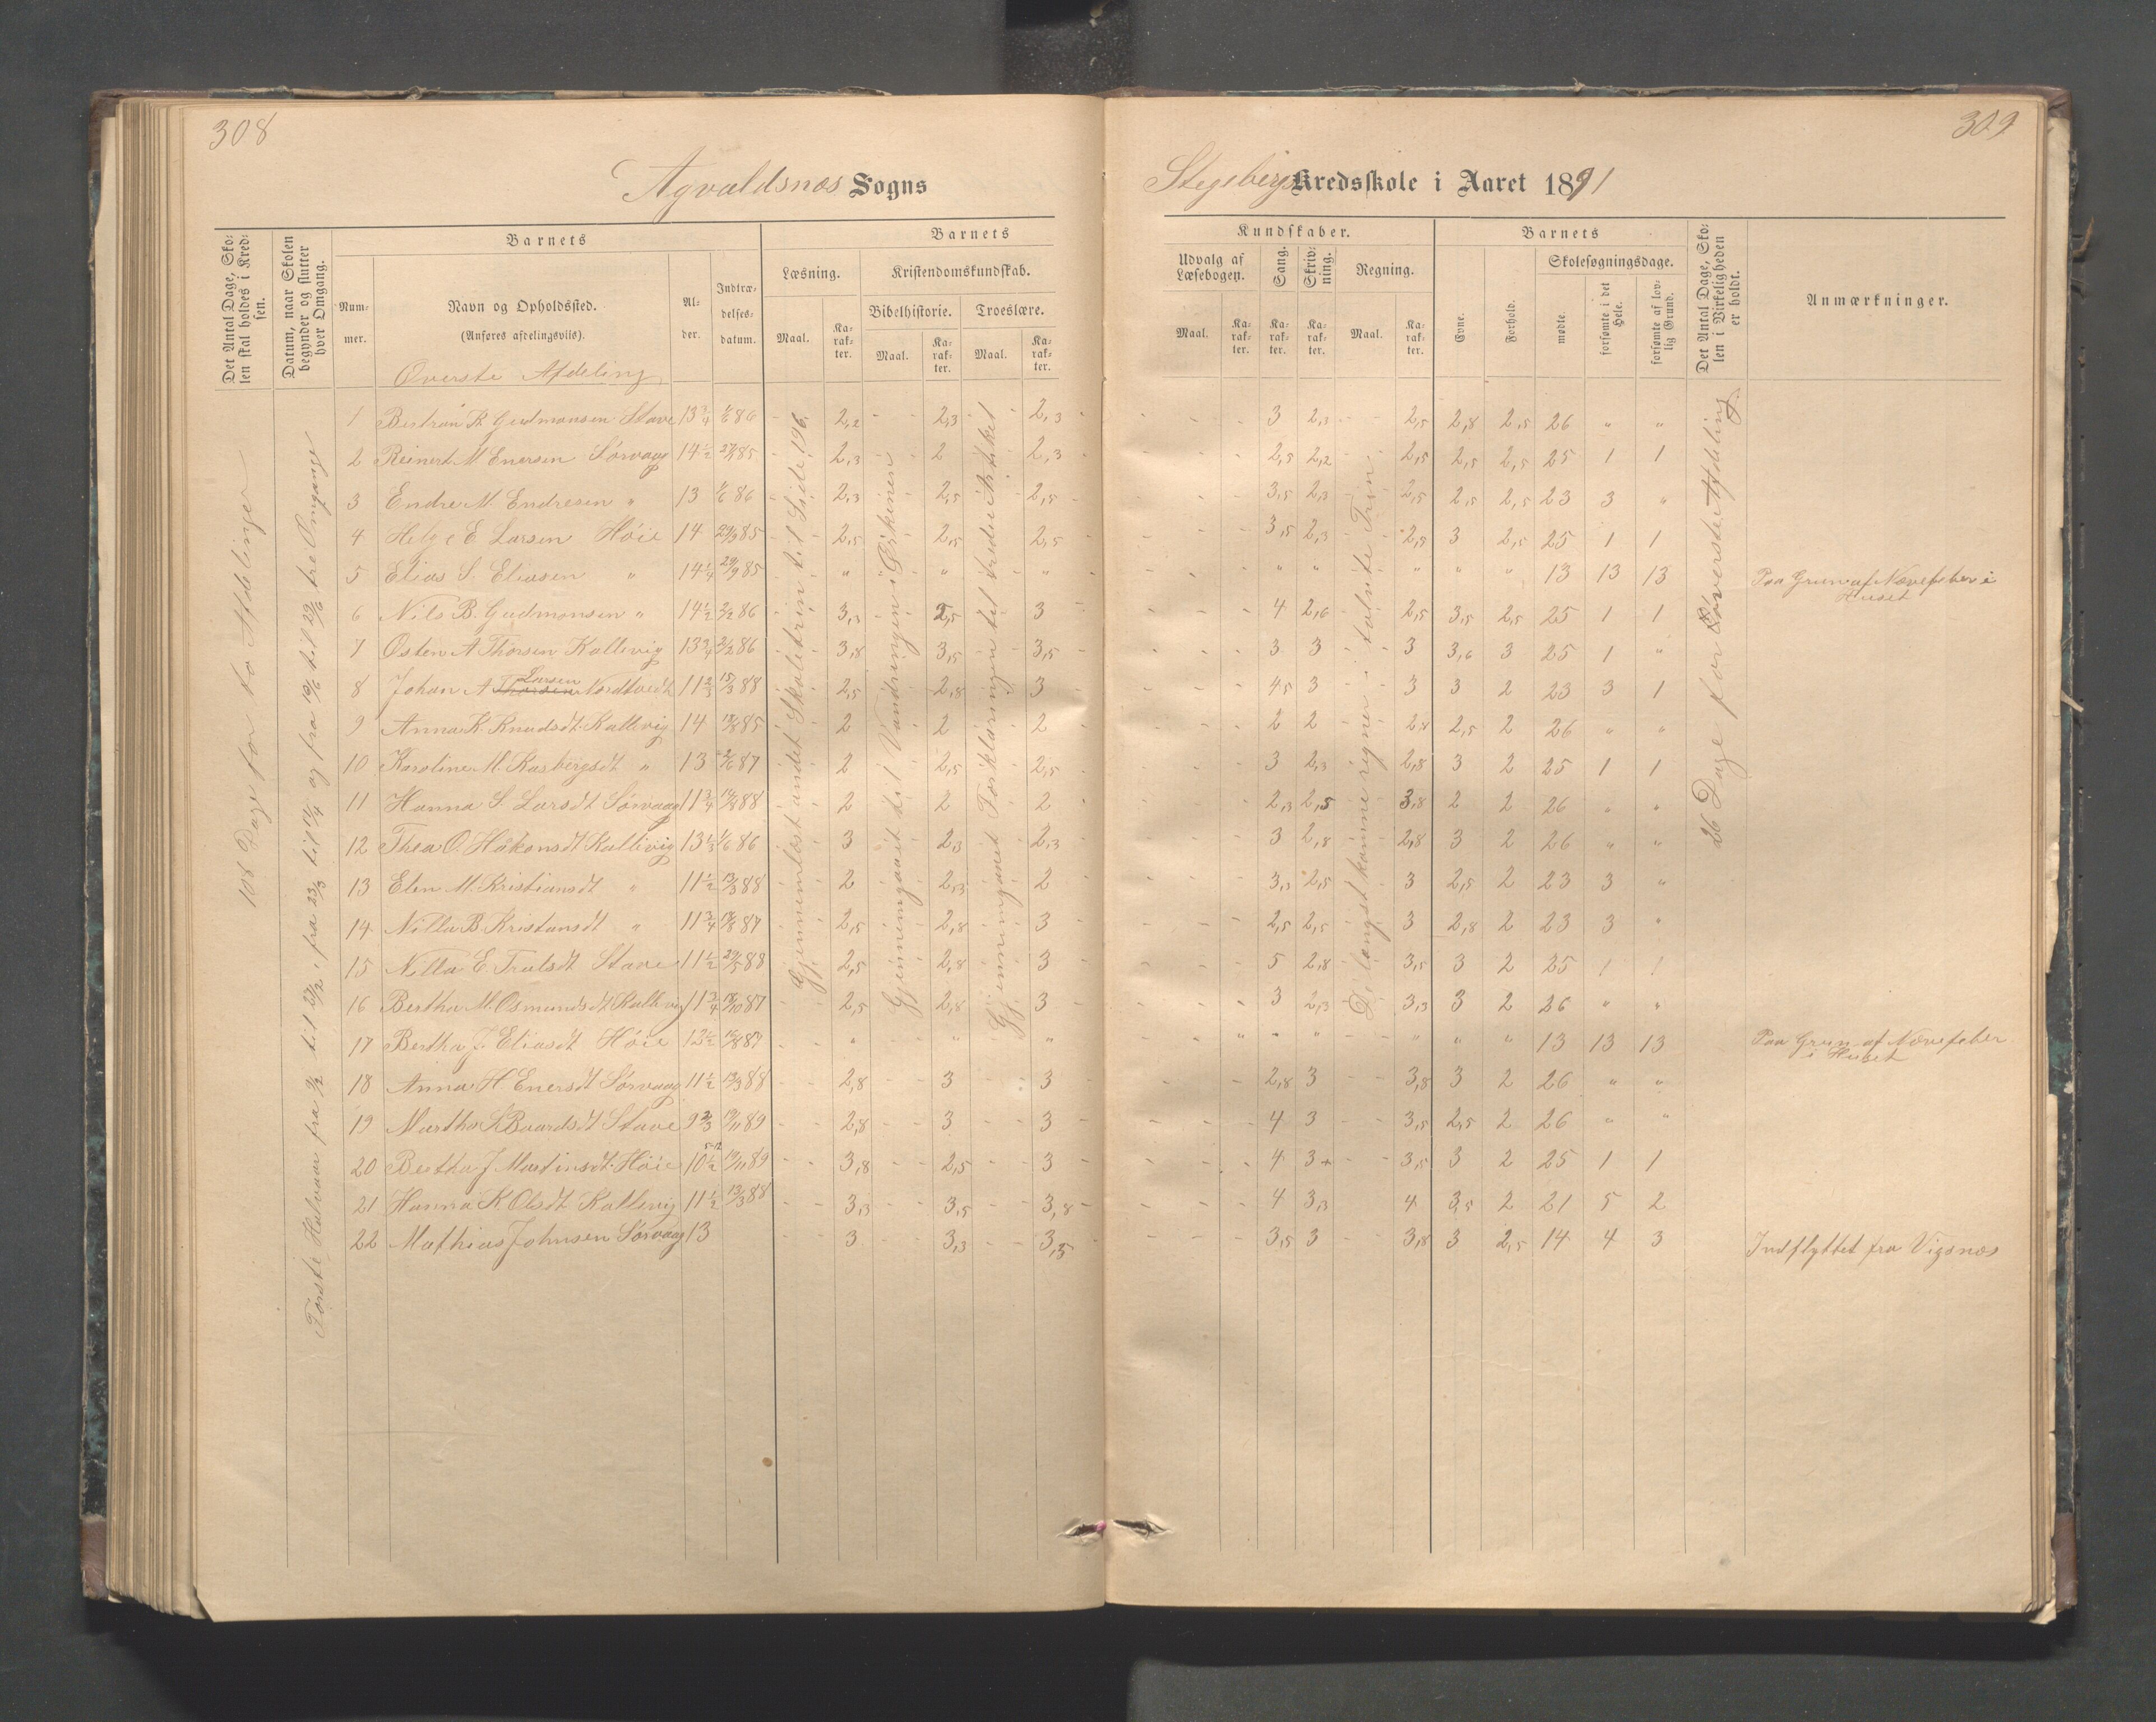 308
309
Agvaldsnæs Sogns
Stegebergs Kredsskole i Aaret 1891
Det Antal Dage, Sko-
len skal holdes i Kred-
sen.
Datum, naar Skolen
begynder og slutter
hver Omgang.
Barnets
Num-
mer.
Navn og Opholdssted.
(Anføres afdelingsviis).
Al-
der.
Indtræ-
delses-
datum.
Barnets
Læsning.
Maal.
Ka-
rak-
ter.
Kristendomskundskab.
Bibelhistorie.
Maal.
Ka-
rak-
ter.
Troeslære.
Maal.
Ka-
rak-
ter.
Kundskaber.
Udvalg af
Læsebogen.
Maal.
Ka-
rak-
ter.
Sang.
Ka-
rak-
ter.
Skriv-
ning.
Ka-
rak-
ter.
Regning.
Maal.
Ka-
rak-
ter.
Barnets
Evne.
Forhold.
Skolesøgningsdage.
mødte.
forsømte i det
Hele.
forsømte af lov-
lig Grund.
Det Antal Dage, Sko-
len i Virkeligheden
er holdt.
Anmærkninger.
Øverste Afdeling
108 Dage for to Afdelinger
Første Halvaar fra 9/2 til 27/2, fra 23/3 til 14/4 og fra 10/6 til 23/6 tre Omgange
Gjennemlæst andet Skoletrin til Side 196.
Gjennemgaaet til Vandringen i Ørkenen
Gjennemgaaet Forklaringen til tredie Artikel
De længst komne regner i talnite Trin
26 Dage for Øverste Afdeling
1 Bertran K Gudmonsen Stave 13 3/4 1/6 86 2,2 2,3 2,3 3 2,3 2,5 2,8 2,5 26 " "
2 Reinert M Enersen Sørvaag 14 1/2 27/4 85 2,3 2 2,3 2,5 2,2 2,5 2,5 2,5 25 1 1
3 Endre M. Endresen " 13 1/6 86 2,3 2,5 2,5 3,5 2,3 2,5 2,5 2,5 23 3 "
4 Helge E Larsen Höie 14 29/9 85 2,5 2,5 2,5 3,5 2,3 2,5 3 2,5 25 1 1
5 Elias S. Eliasen " 14 1/4 29/9 85 " " " " " " " " 13 13 13 Paa Grun af Nævefeber i
Huset
6 Nils B. Gudmonsen " 14 1/2 2/2 86 3,3 2,5 3 4 2,6 2,5 3,5 2,5 25 1 1
7 Osten A Thorsen Kallevig 13 3/4 2/2 86 3,8 3,5 3,5 3 3 3 3,6 3 25 1 "
8 Johan A Larsen Nordtvedt 11 2/3 15/3 88 2,5 2,8 3 4,5 3 3 3 2 23 3 1
9 Anna K. Knudsdt. Kallevig 14 19/8 85 2 2 2 2 2 2,8 2,5 2 26 " "
10 Karoline M. Rasbergsdt " 13 2/6 87 2 2,5 2,5 3 2,3 2,8 3 2 25 1 1
11 Hanna S. Larsdt Sørvaag 11 3/4 14/3 88 2 2 2 2,3 2,5 3,8 2 2 26 " "
12 Thea O. Håkonsdt Kallevig 13 1/3 1/6 86 3 2,3 2,3 3 2,8 2,8 3 2 26 " "
13 Elen M. Kristiansdt " 11 1/2 13/3 88 2 2,3 2 3,3 2,5 3 2,5 2 23 3 "
14 Nilla B. Kristansdt " 11 3/4 18/8 87 2,5 2,8 3 2,5 2,5 3 2,8 2 23 3 "
15 Nilla E. Trulsdt Stave 11 1/2 29/5 88 2,5 2,8 3 5 2,8 3,5 3 2 25 1 1
16 Bertha M. Osmundsdt Kallevig 11 3/4 18/10 87 2,5 2,8 3 3 2,3 3,3 3 2 26 " "
17 Bertha J Eliasdt Höie 12 1/2 16/8 87 " " " " " " " " 13 13 13 Paa Grun af Nævefeber
i Huset
18 Anna H Enersdt Sørvaag 11 1/2 13/3 88 2,8 3 3 2,8 3 3,8 3 2 26 " "
19 Martha S Baardsdt Stave 9 2/3 19/11 89 2,8 3 3 4 3 3,5 2,5 2 26 " "
20 Bertha J Martinsdt. Höie 10 1/2 19/11 89 3,8 2,5 3 4 3+ 3,5 3 2 25 1 1
21 Hanna K. Olsdt Kallevig 11 1/2 13/3 88 3,3 3,5 3,8 4 3,3 4 3,5 2 21 5 2
22 Mathias Johnsen Sørvaag 13 3 3,3 3,5 3,5 3 3,8 3 2,5 14 4 3 Indflyttet fra Vigsnæs